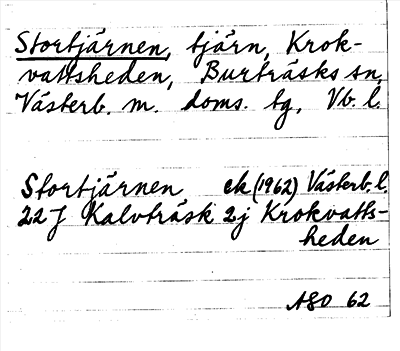 Stortjärnen, tjärn, Krok-
vattsheden, Burträsks sn,
Västerb. m. doms. tg, Vb. l.
Stortjärnen ek (1962) Västerb. l.
22 J Kalvträsk 2j Krokvatts-
heden
ASO 62